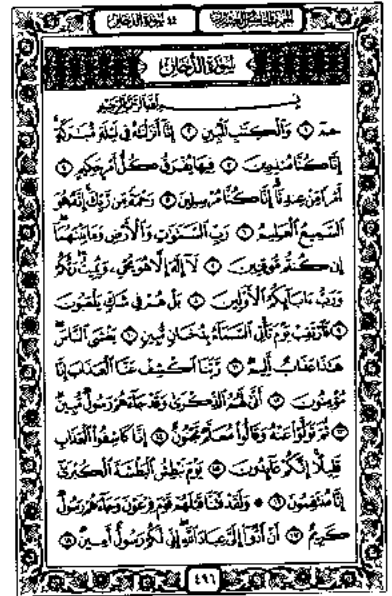 الجزء الخامس والعشرون
٤٤ سورة الدخان
سورة الدخان
بسم الله الرحمن الرحيم
حم ١ والكتب المبين ٢ إنا أنزلنه في ليلة مبركة
إنا كنا منذرين ٣ فيها يفرق كل أمر حكيم ٤
أمرا من عندنا إنا كنا مرسلين ٥ رحمة من ربك إنه هو
السميع العليم ٦ رب السموت والأرض وما بينهما
إن كنتم موقنين ٧ لا إله إلا هو يحي ويميت ربكم
ورب ءابائكم الأولين ٨ بل هم في شك يلعبون
٩ فارتقب يوم تأتي السماء بدخان مبين ١٠ يغشى الناس
هذا عذاب أليم ١١ ربنا اكشف عنا العذاب إنا
مؤمنون ١٢ أنى لهم الذكرى وقد جاءهم رسول مبين
١٣ ثم تولوا عنه وقالوا معلم مجنون ١٤ إنا كاشفوا العذاب
قليلا إنكم عائدون ١٥ يوم نبطش البطشة الكبرى
إنا منتقمون ١٦ ۞ ولقد فتنا قبلهم قوم فرعون وجاءهم رسول
كريم ١٧ أن أدوا إلي عباد الله إني لكم رسول أمين ١٨
٤٩٦